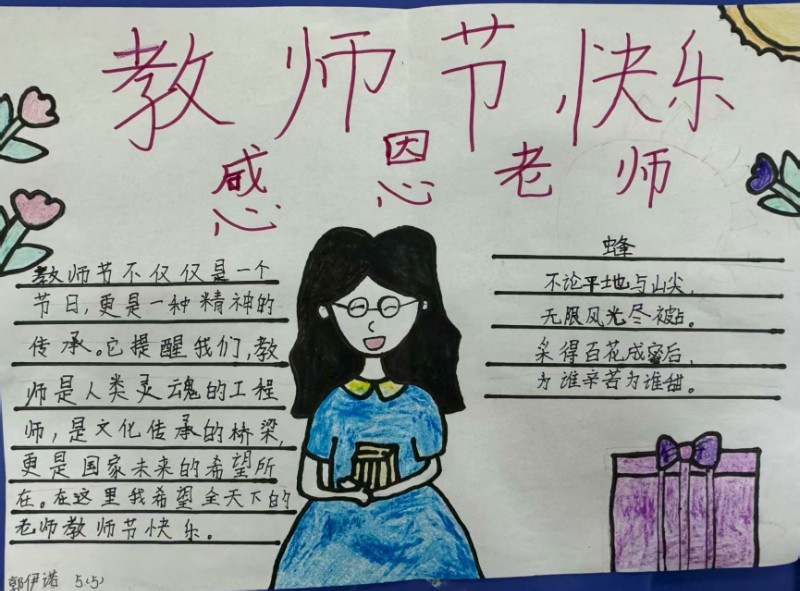 教师节快乐
感恩老师
教师节不仅仅是一个
节日,更是一种精神的
传承。它提醒我们,教
师是人类灵魂的工程
师,是文化传承的桥梁,
更是国家未来的希望所
在。在这里我希望全天下的
老师教师节快乐。
蜂
不论平地与山尖,
无限风光尽被占。
采得百花成蜜后,
为谁辛苦为谁甜。
郭伊诺 5(5)